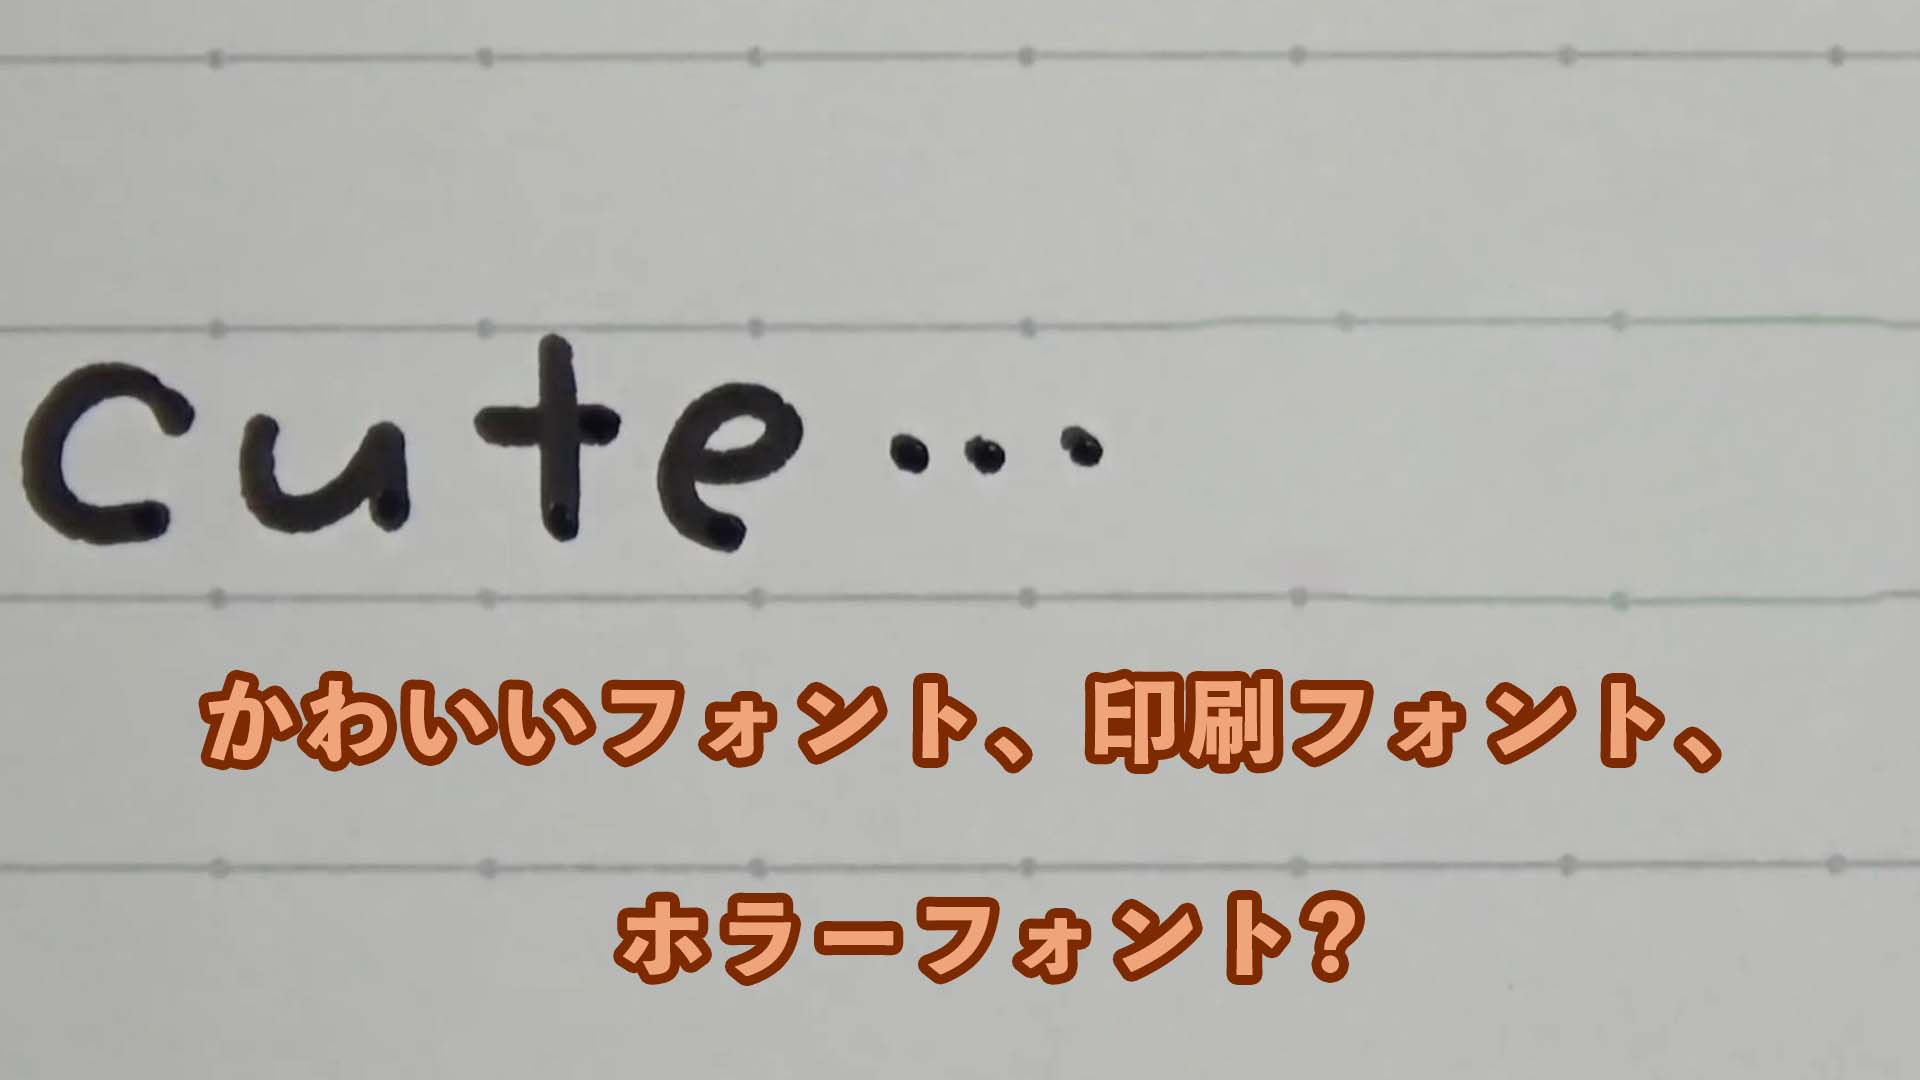 cute...
かわいいフォント、印刷フォント、
ホラーフォント?